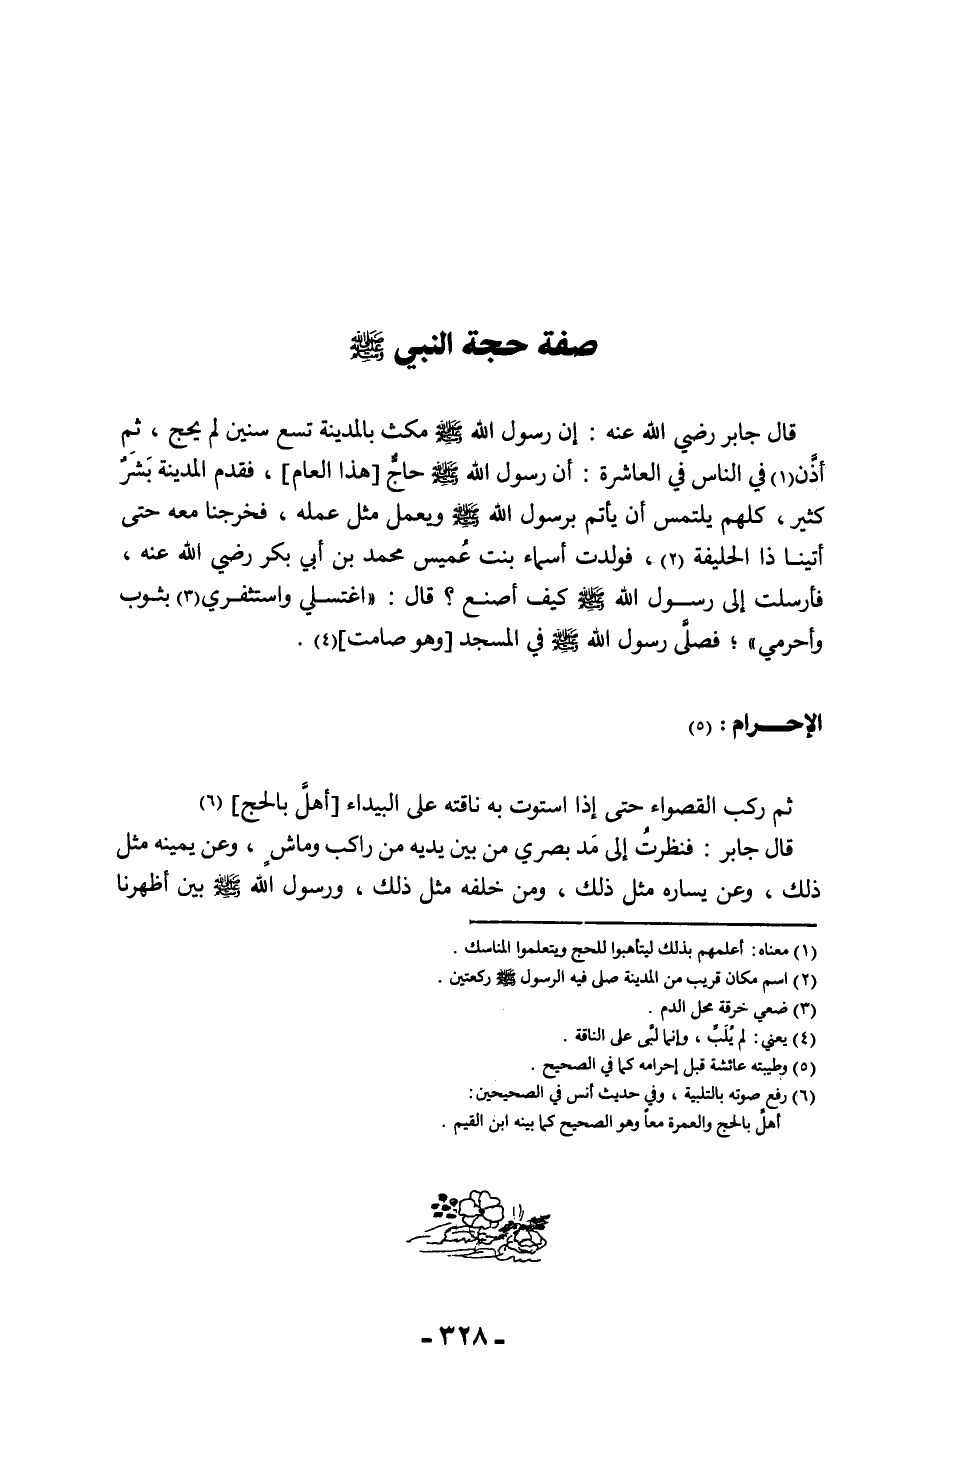 صفة حجة النبي ﷺ
قال جابر رضي الله عنه : إن رسول الله ﷺ مكث بالمدينة تسع سنين لم يحج ، ثم
أذَّن(١) في الناس في العاشرة : أن رسول الله ﷺ حاجٌّ [هذا العام] ، فقدم المدينة بَشَرٌ
كثير ، كلهم يلتمس أن يأتم برسول الله ﷺ ويعمل مثل عمله ، فخرجنا معه حتى
أتينا ذا الحليفة (٢) ، فولدت أسماء بنت عُميس محمد بن أبي بكر رضي الله عنه ،
فأرسلت إلى رسول الله ﷺ كيف أصنع ؟ قال : «اغتسلي واستثفري(٣) بثوب
وأحرمي» ؛ فصلَّى رسول الله ﷺ في المسجد [وهو صامت](٤) .
الإحرام : (٥)
ثم ركب القصواء حتى إذا استوت به ناقته على البيداء [أهلَّ بالحج] (٦)
قال جابر : فنظرتُ إلى مَد بصري من بين يديه من راكب وماشٍ ، وعن يمينه مثل
ذلك ، وعن يساره مثل ذلك ، ومن خلفه مثل ذلك ، ورسول الله ﷺ بين أظهرنا
(١) معناه: أعلمهم بذلك ليتأهبوا للحج ويتعلموا المناسك .
(٢) اسم مكان قريب من المدينة صلى فيه الرسول ﷺ ركعتين .
(٣) ضعي خرقة محل الدم .
(٤) يعني: لم يُلَبِّ ، وإنما لبَّى على الناقة .
(٥) وطيبته عائشة قبل إحرامه كما في الصحيح .
(٦) رفع صوته بالتلبية ، وفي حديث أنس في الصحيحين:
أهلَّ بالحج والعمرة معاً وهو الصحيح كما بينه ابن القيم .
- ٣٢٨ -